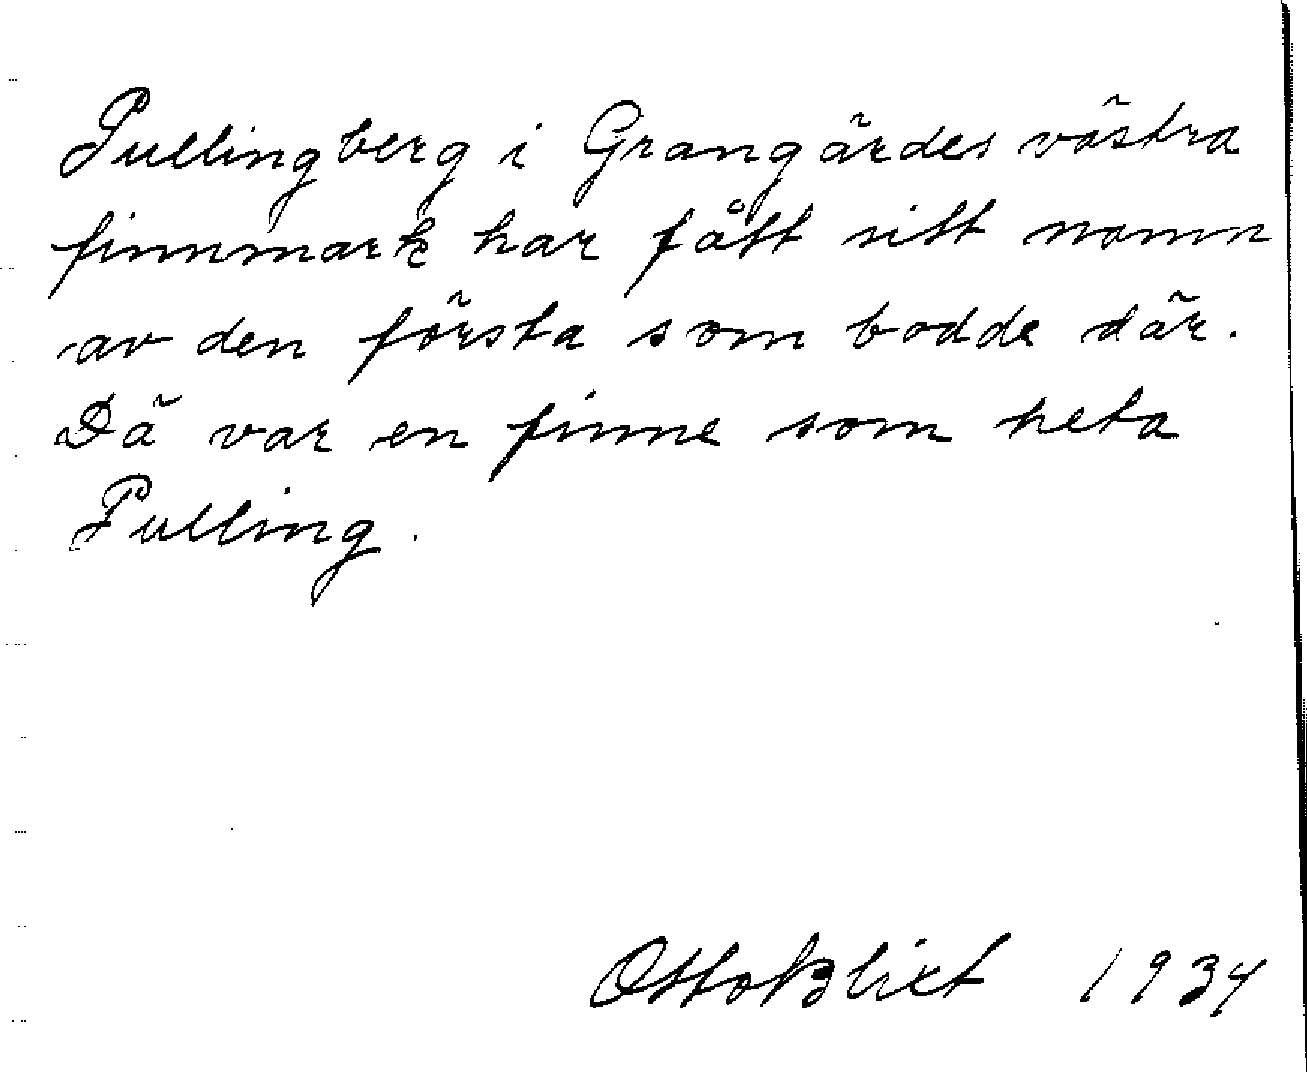 Pullingberg i Grangärdes västra
finnmark har fått sitt namn
av den första som bodde där.
Dä var en finne som heta
Pulling.
Otto Blixt 1934